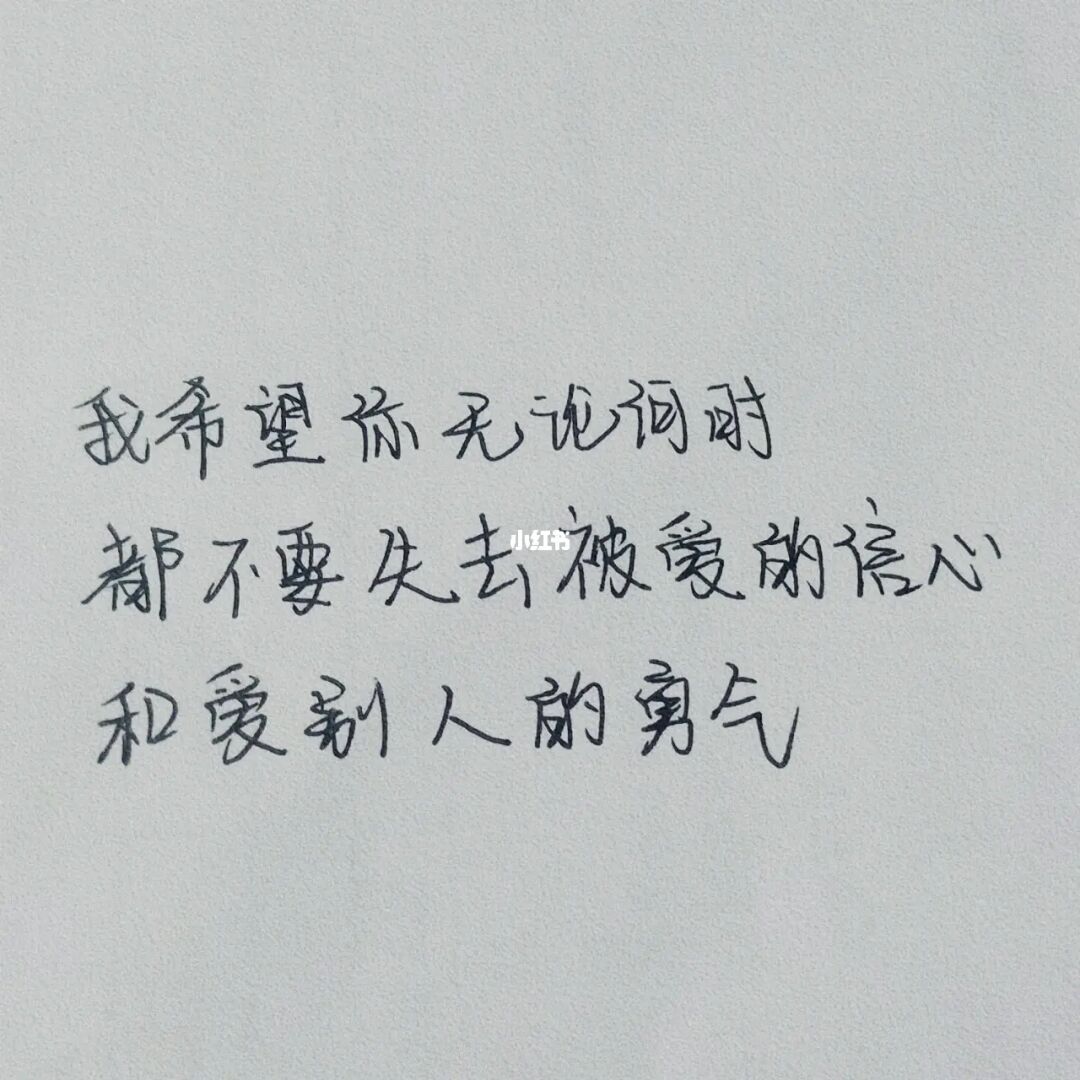 我希望你无论何时
都不要失去被爱的信心
小红书
和爱别人的勇气